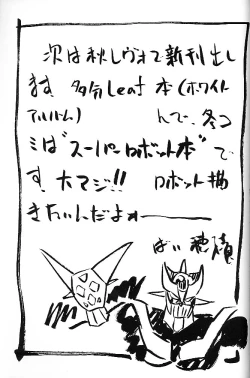 次は秋レヴォで新刊出し
ます。多分Leaf本(ホワイト
アルバム) んで、冬コ
ミは"スーパーロボット本"で
す。大マジ!! ロボット描
きたいんだよォ———
ぱい